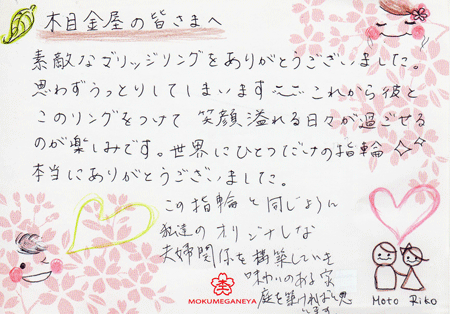 木目金屋の皆さまへ
素敵なマリッジリングをありがとうございました。
思わずうっとりしてしまいます これから彼と
このリングをつけて笑顔溢れる日々が過ごせる
のが楽しみです。世界にひとつだけの指輪
本当にありがとうございました。
この指輪と同じように
私達のオリジナルな
夫婦関係を構築していき
味わいのある家
庭を築ければと思
います
MOKUMEGANEYA
Moto Riko